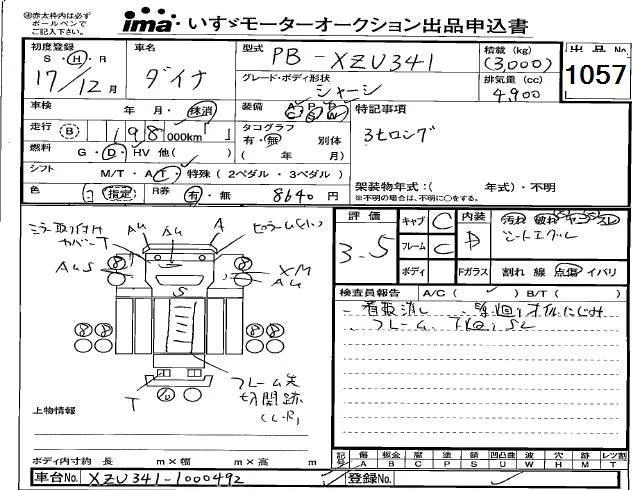 ※赤太枠内は必ずボールペンでご記入下さい。
ima いすゞモーターオークション出品申込書
初度登録 車名 型式 PB-XZU341 積載(kg) 出品No.
S・H・R ダイナ グレード・ボディ形状 (3,000) 1057
17/12月 シャーシ 排気量(cc)
4,900
車検 年・月・抹消 装備 A P W 特記事項
走行 B 198 000km タコグラフ 3tロング
有・無 別体
燃料 G・D・HV 他( ) ( 年 月)
シフト M/T・A/T・特殊(2ペダル・3ペダル)
色 (指定) R券 有・無 8640円 架装物年式:( 年式)・不明
※不明の場合は、不明に○をする。
評価 キャブ C 内装 汚れ 破れ ヤニ スレ
3.5 フレーム C D シートエグレ
ボディ Fガラス 割れ 線 点傷 イバリ
検査員報告 A/C( ) B/T( )
看板消し オイルにじみ
フレーム、下回りSL
ミラー取り付けカバーT AU AU A ピラーU(小)
AUS XM
AU
S
T フレーム先切開跡(L・R)
上物情報
ボディ内寸約 長 m×幅 m×高 m
記号 傷 板金 腐 塗 錆 凹凸曲 波 穴 跡 レツ割
A B C P S U W H M T
車台No. XZU341-1000492 登録No.